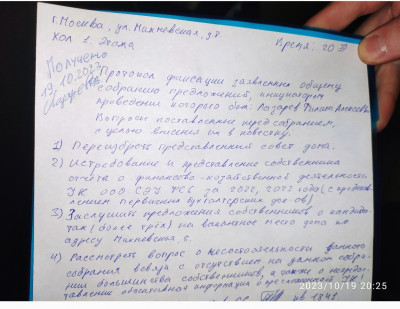 г. Москва, ул. Михневская, д.8
Холл 1 Этажа Время: 20 30
Получено
19.10.2023
Протокол фиксации заявленных общему
собранию предложений, инициатором
проведения которого был Лазарев Филат Алексеевич
Вопросы поставленные перед собранием,
с целью внесения их в повестку.
1) Переизбрать представленный совет дома.
2) Истребование и представление собственникам
отчета о финансово-хозяйственной деятельности
УК ООО за 2022, 2023 года (с представ-
лением первичных бухгалтерских док-ов)
3) Заслушать предложения собственников о кандида-
тах (более трёх) на вакантное место дома по
адресу Михневская 8.
4) Рассмотреть вопрос о несостоятельности данного
собрания ввиду с отсутствием на данном собра-
нии большинства собственников, а также о непредос-
тавлении обязательной информации
2023/10/19 20:25